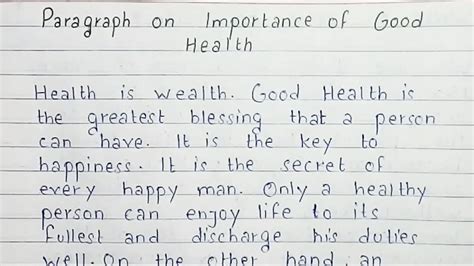 Paragraph on Importance of Good
Health
Health is wealth. Good Health is
the greatest blessing that a person
can have. It is the key to
happiness. It is the secret of
every happy man. Only a healthy
person can enjoy life to its
fullest and discharge his duties
well. On the other hand, an